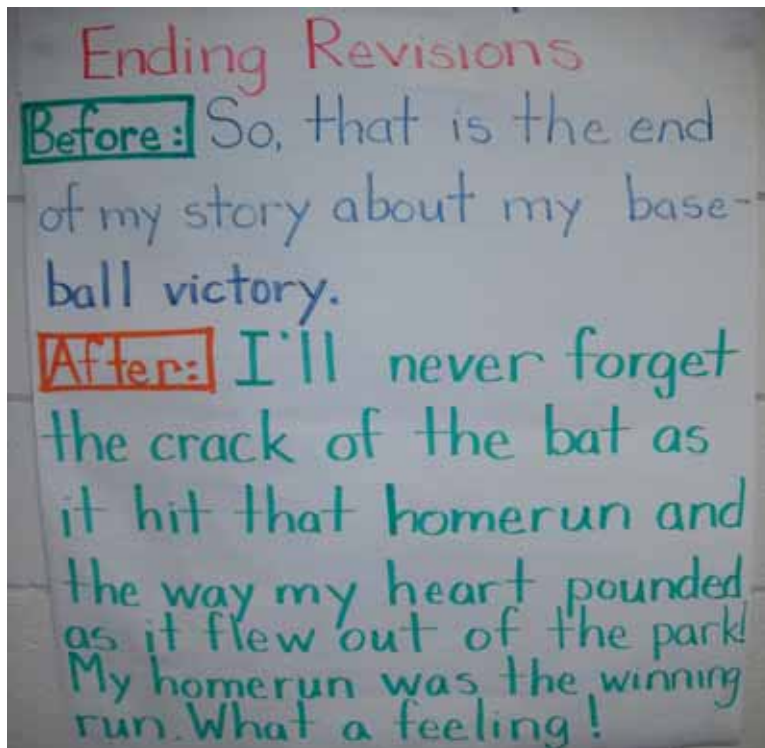 Ending Revisions
Before: So, that is the end
of my story about my base-
ball victory.
After: I'll never forget
the crack of the bat as
it hit that homerun and
the way my heart pounded
as it flew out of the park!
My homerun was the winning
run. What a feeling!